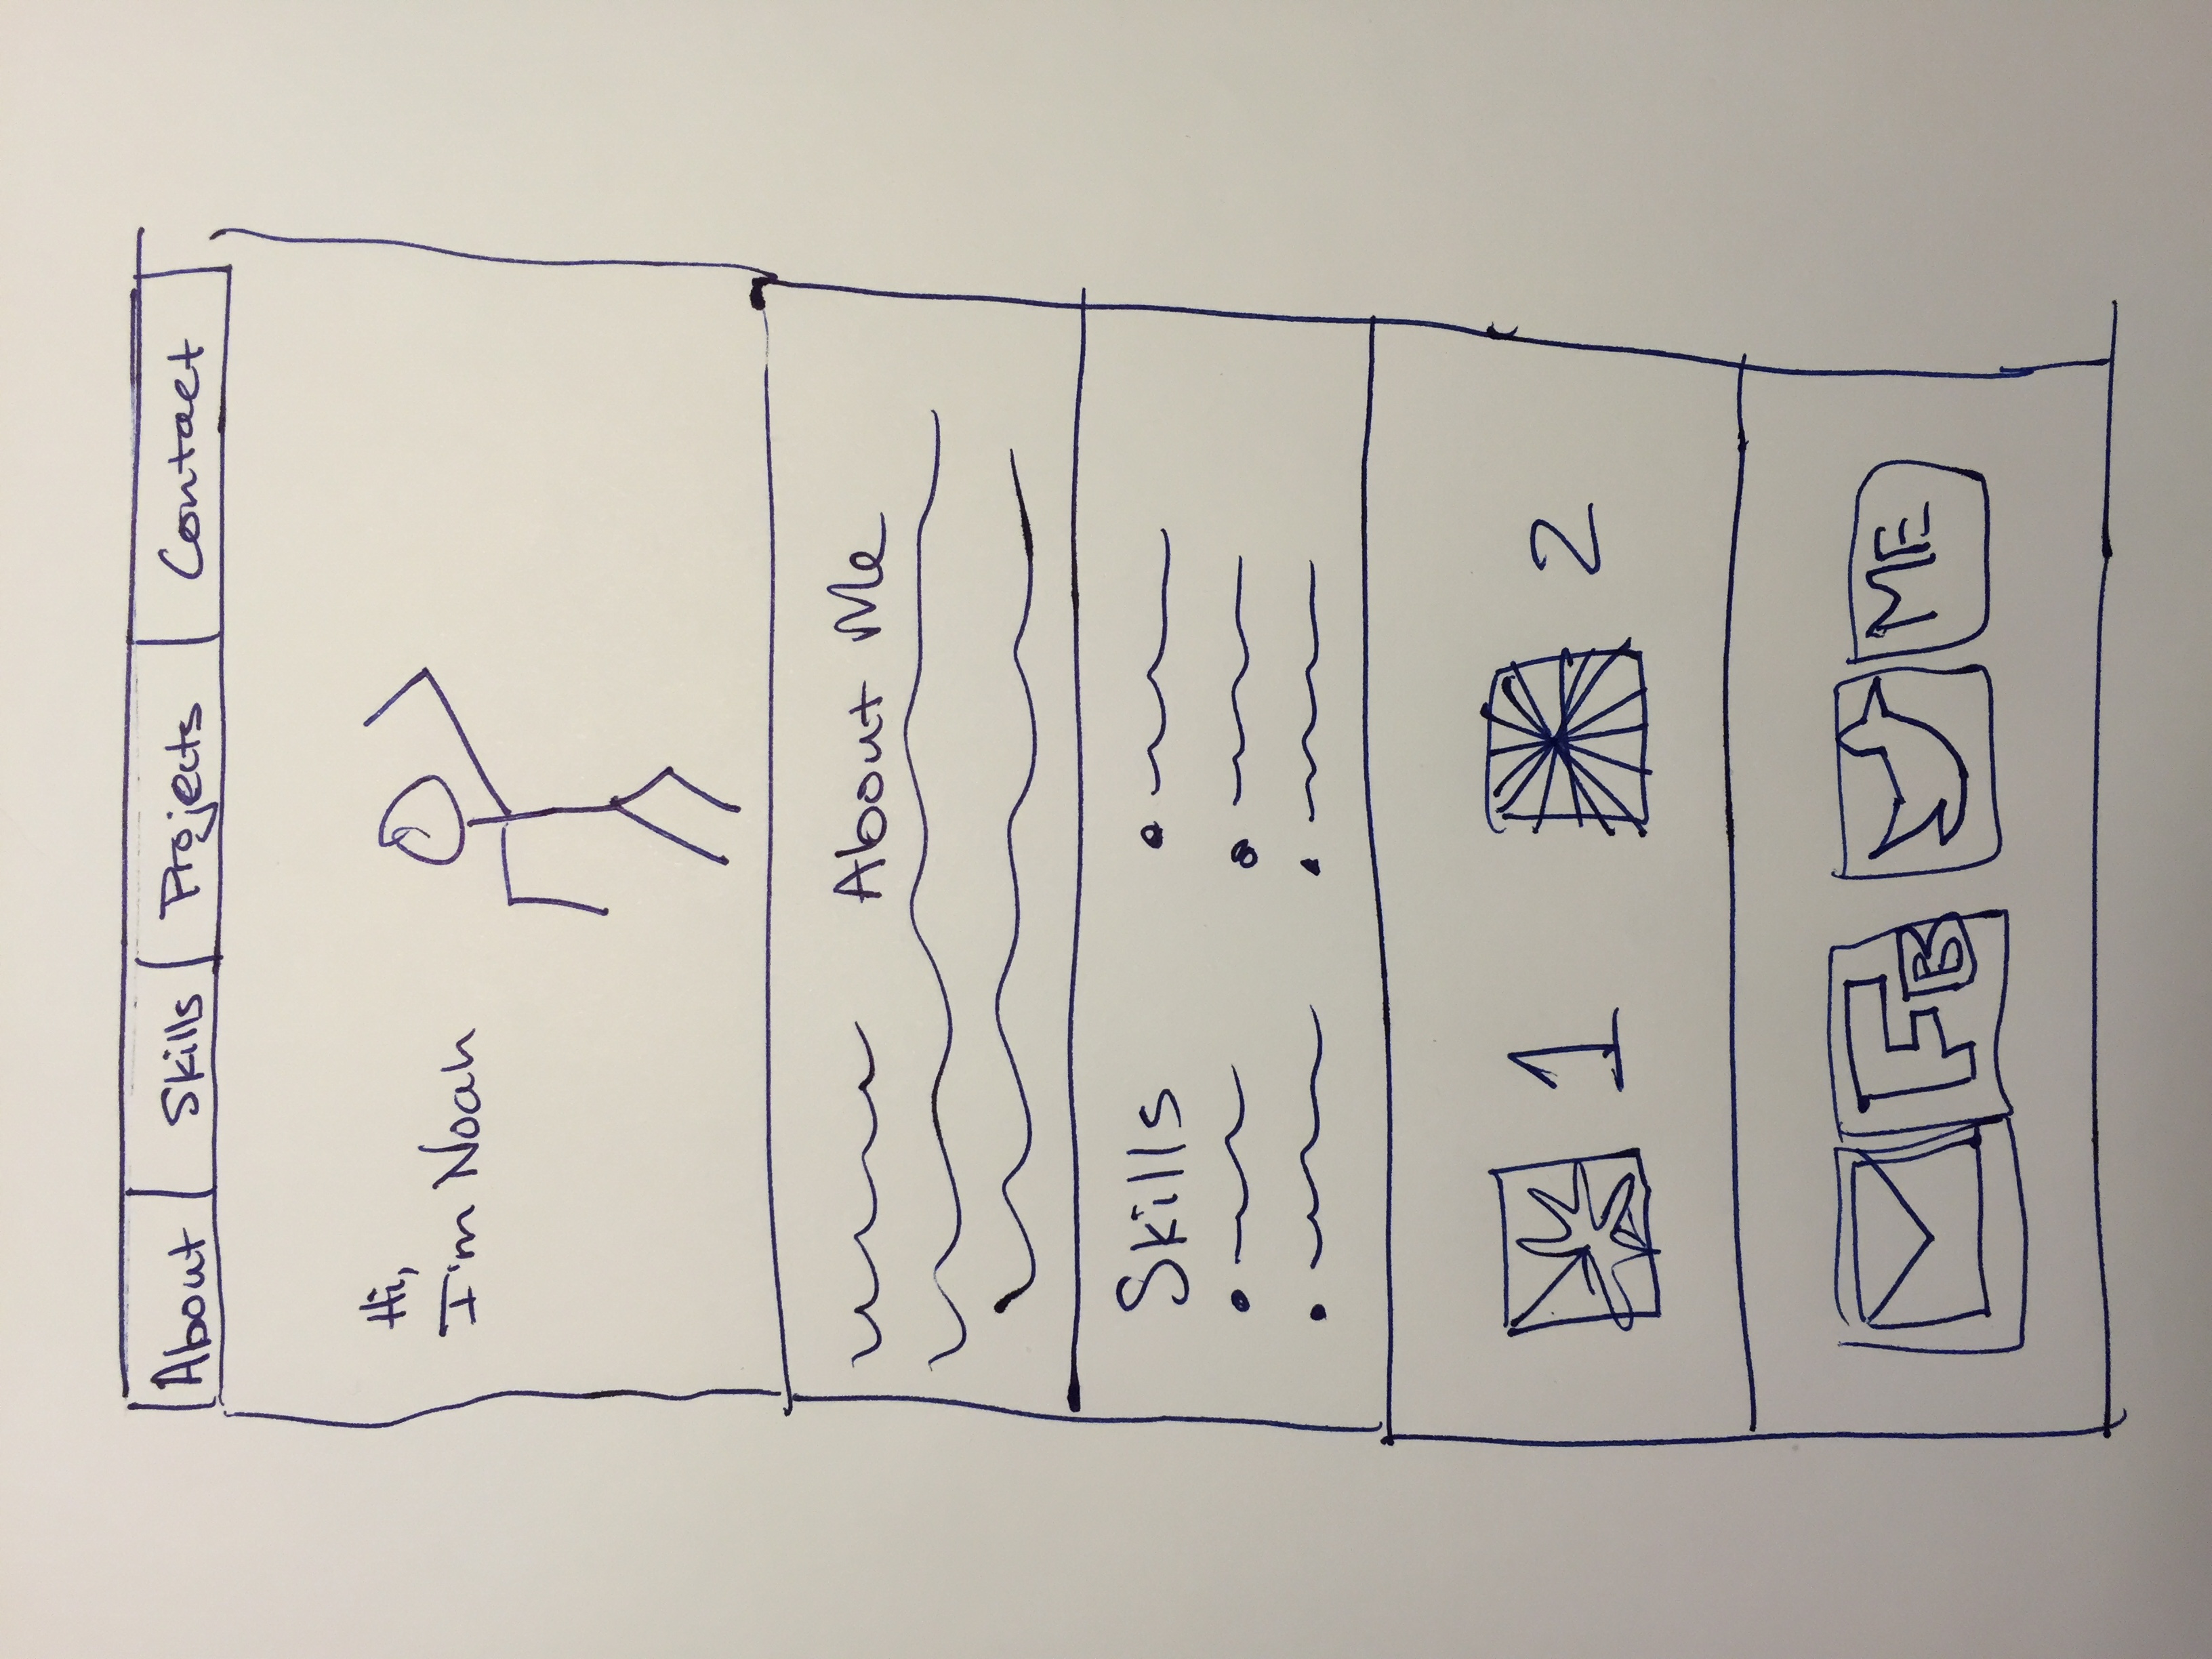 About Skills Projects Contact
Hi,
I'm Noah
About Me
Skills
1 2
FB ME